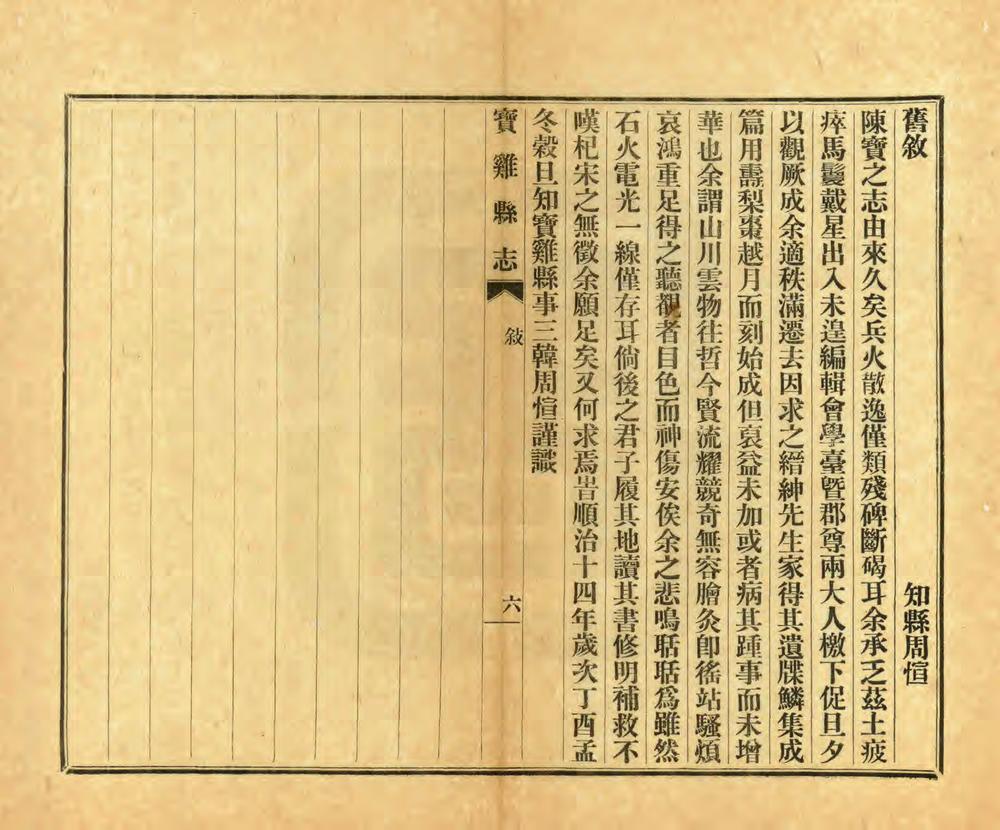 舊敘
知縣周愃
陳寶之志由來久矣兵火散逸僅類殘碑斷碣耳余承乏茲土疲
瘁馬鬉戴星出入未遑編輯會學臺暨郡尊兩大人檄下促旦夕
以觀厥成余適秩滿遷去因求之縉紳先生家得其遺牒鱗集成
篇用壽梨棗越月而刻始成但裒益未加或者病其踵事而未增
華也余謂山川雲物往哲今賢流耀競奇無容膾灸卽徭站騷煩
哀鴻重足得之聽覩者目色而神傷安俟余之悲鳴聒聒爲雖然
石火電光一線僅存耳倘後之君子履其地讀其書修明補救不
嘆杞宋之無徵余願足矣又何求焉旹順治十四年歲次丁酉孟
冬穀旦知寶雞縣事三韓周愃謹識
寶雞縣志
敍
六